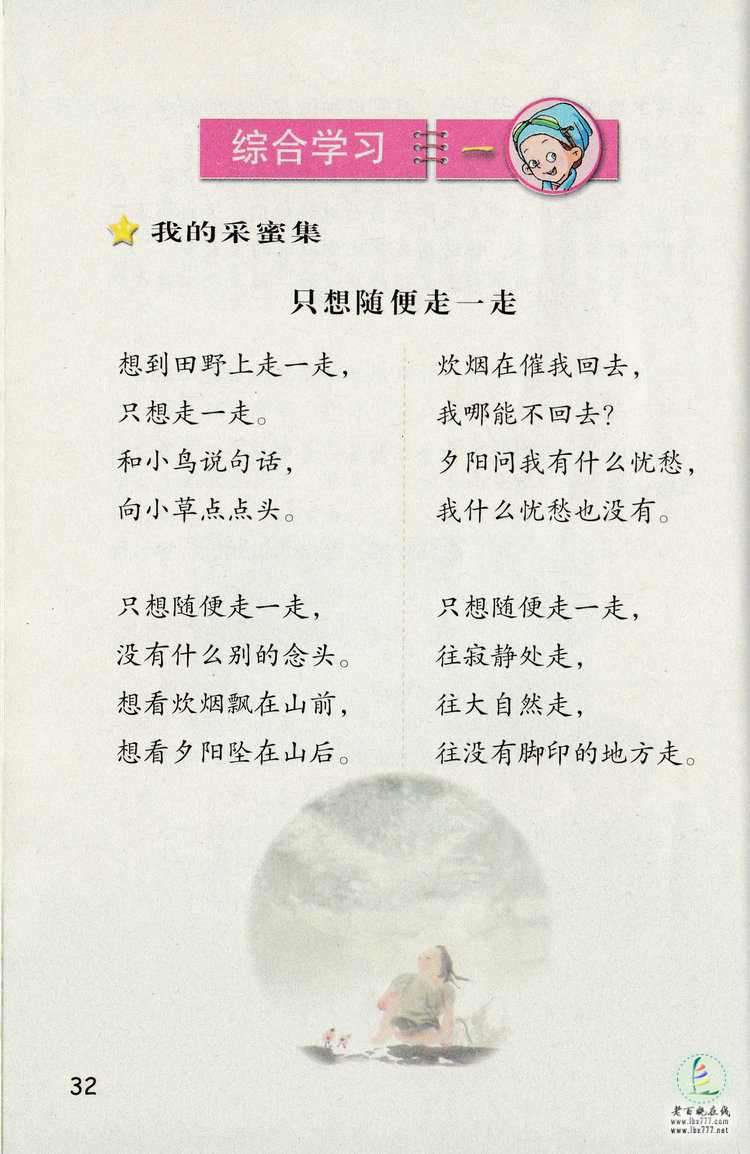 综合学习 一
我的采蜜集
只想随便走一走
想到田野上走一走，
只想走一走。
和小鸟说句话，
向小草点点头。
只想随便走一走，
没有什么别的念头。
想看炊烟飘在山前，
想看夕阳坠在山后。
炊烟在催我回去，
我哪能不回去？
夕阳问我有什么忧愁，
我什么忧愁也没有。
只想随便走一走，
往寂静处走，
往大自然走，
往没有脚印的地方走。
32
老百晓在线
www.lbx777.com
www.lbx777.net